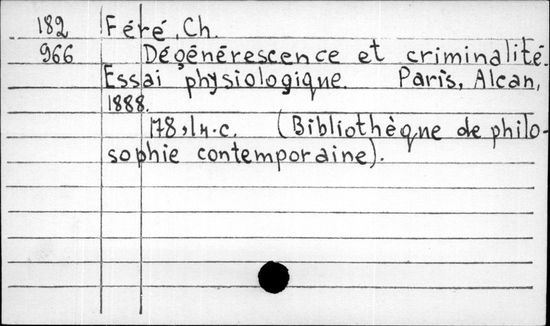 182 Féré, Ch.
966 Dégénérescence et criminalité.
Essai physiologique. Paris, Alcan,
1888.
178, 1 н.с. (Bibliothèque de philo-
sophie contemporaine).